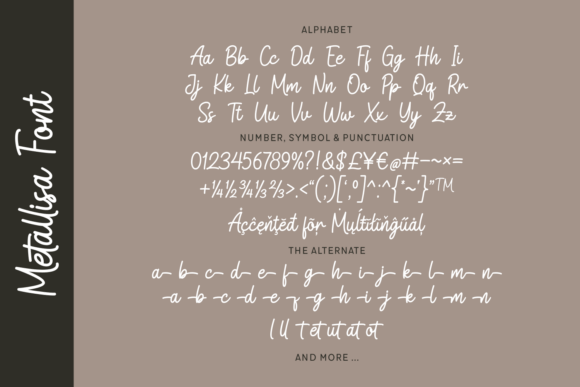 Metallisa Font
ALPHABET
Aa Bb Cc Dd Ee Ff Gg Hh Ii
Jj Kk Ll Mm Nn Oo Pp Qq Rr
Ss Tt Uu Vv Ww Xx Yy Zz
NUMBER, SYMBOL & PUNCTUATION
0123456789%?!&$£¥€@#-~×=
+¼½¾⅓⅔>.<“(;)[¦,º]^:^{“~’}”™
Àççêņťëđ fõř Ṃųĺťıľıňğűáļ
THE ALTERNATE
a b c d e f g h i j k l m n
a b c d e f g h i j k l m n
l ll T et ut at ot
AND MORE ...